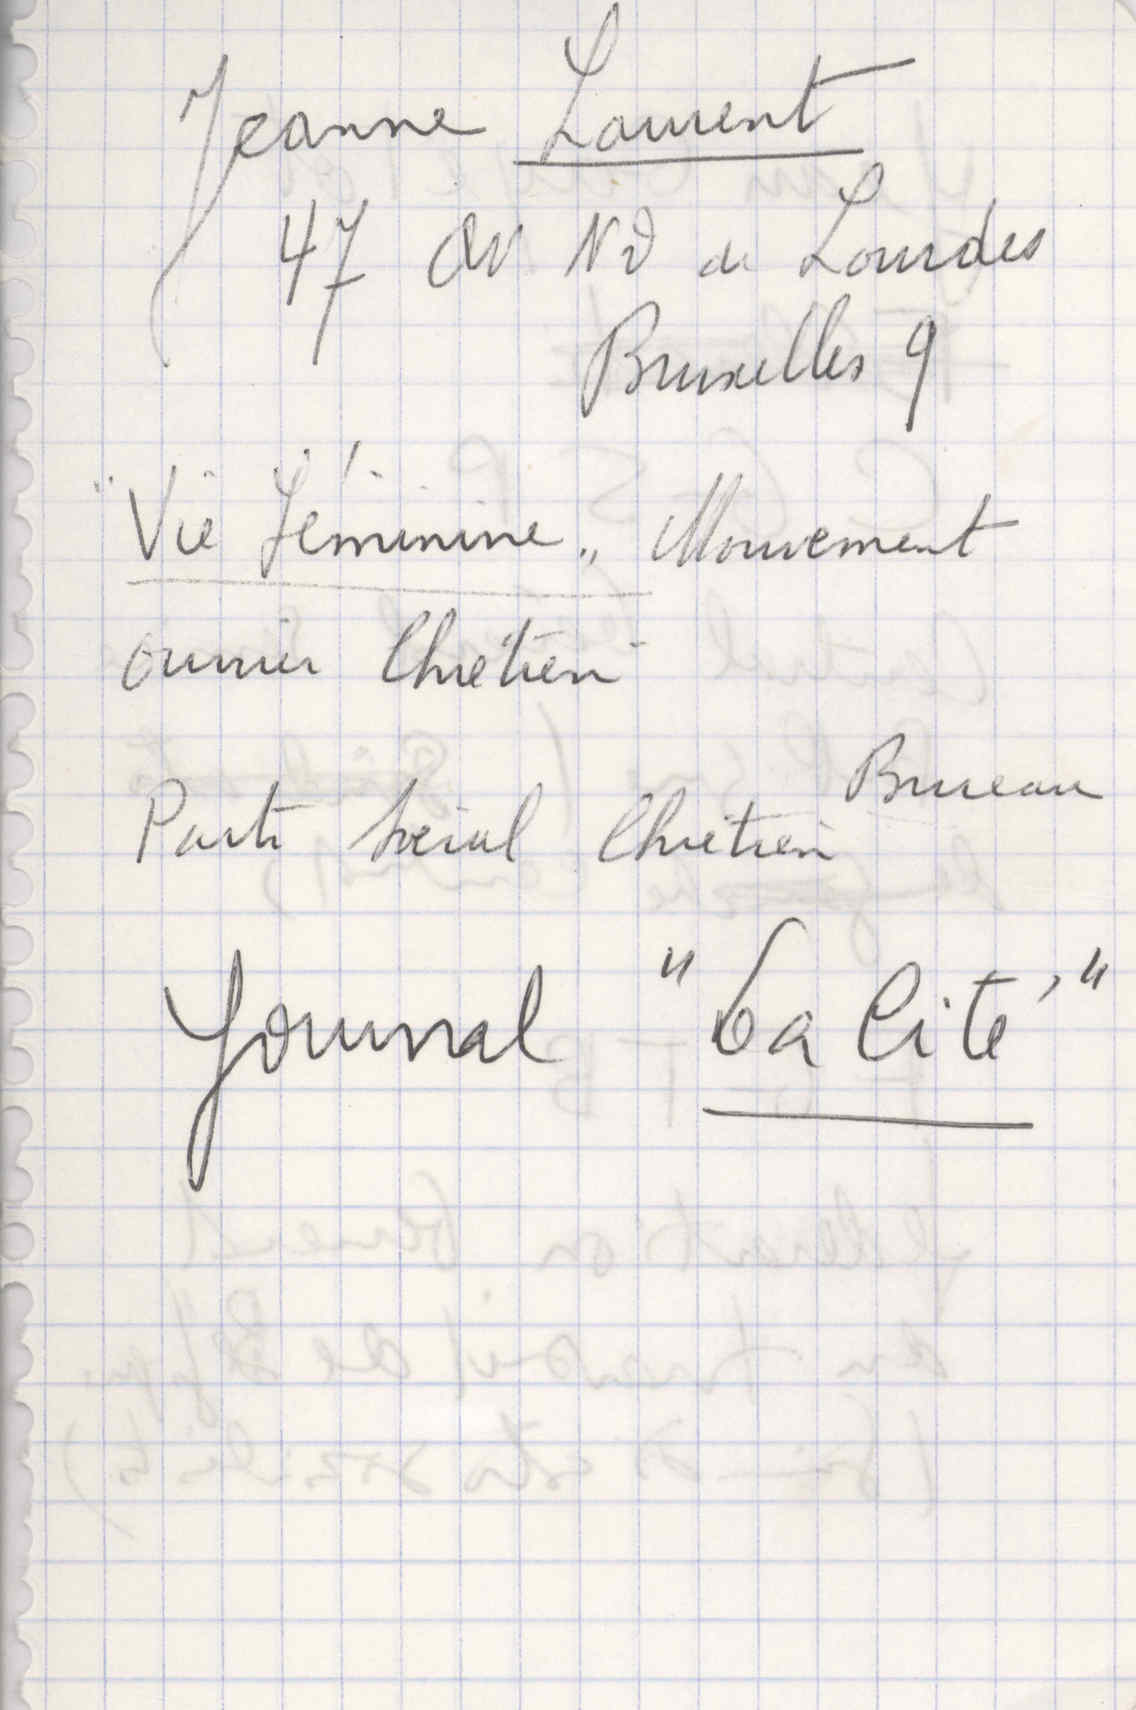 Jeanne Laurent
47 av ND de Lourdes
Bruxelles 9
"Vie féminine" Mouvement
ouvrier Chrétien
Bureau
Parti Social Chrétien
Journal "La Cité"